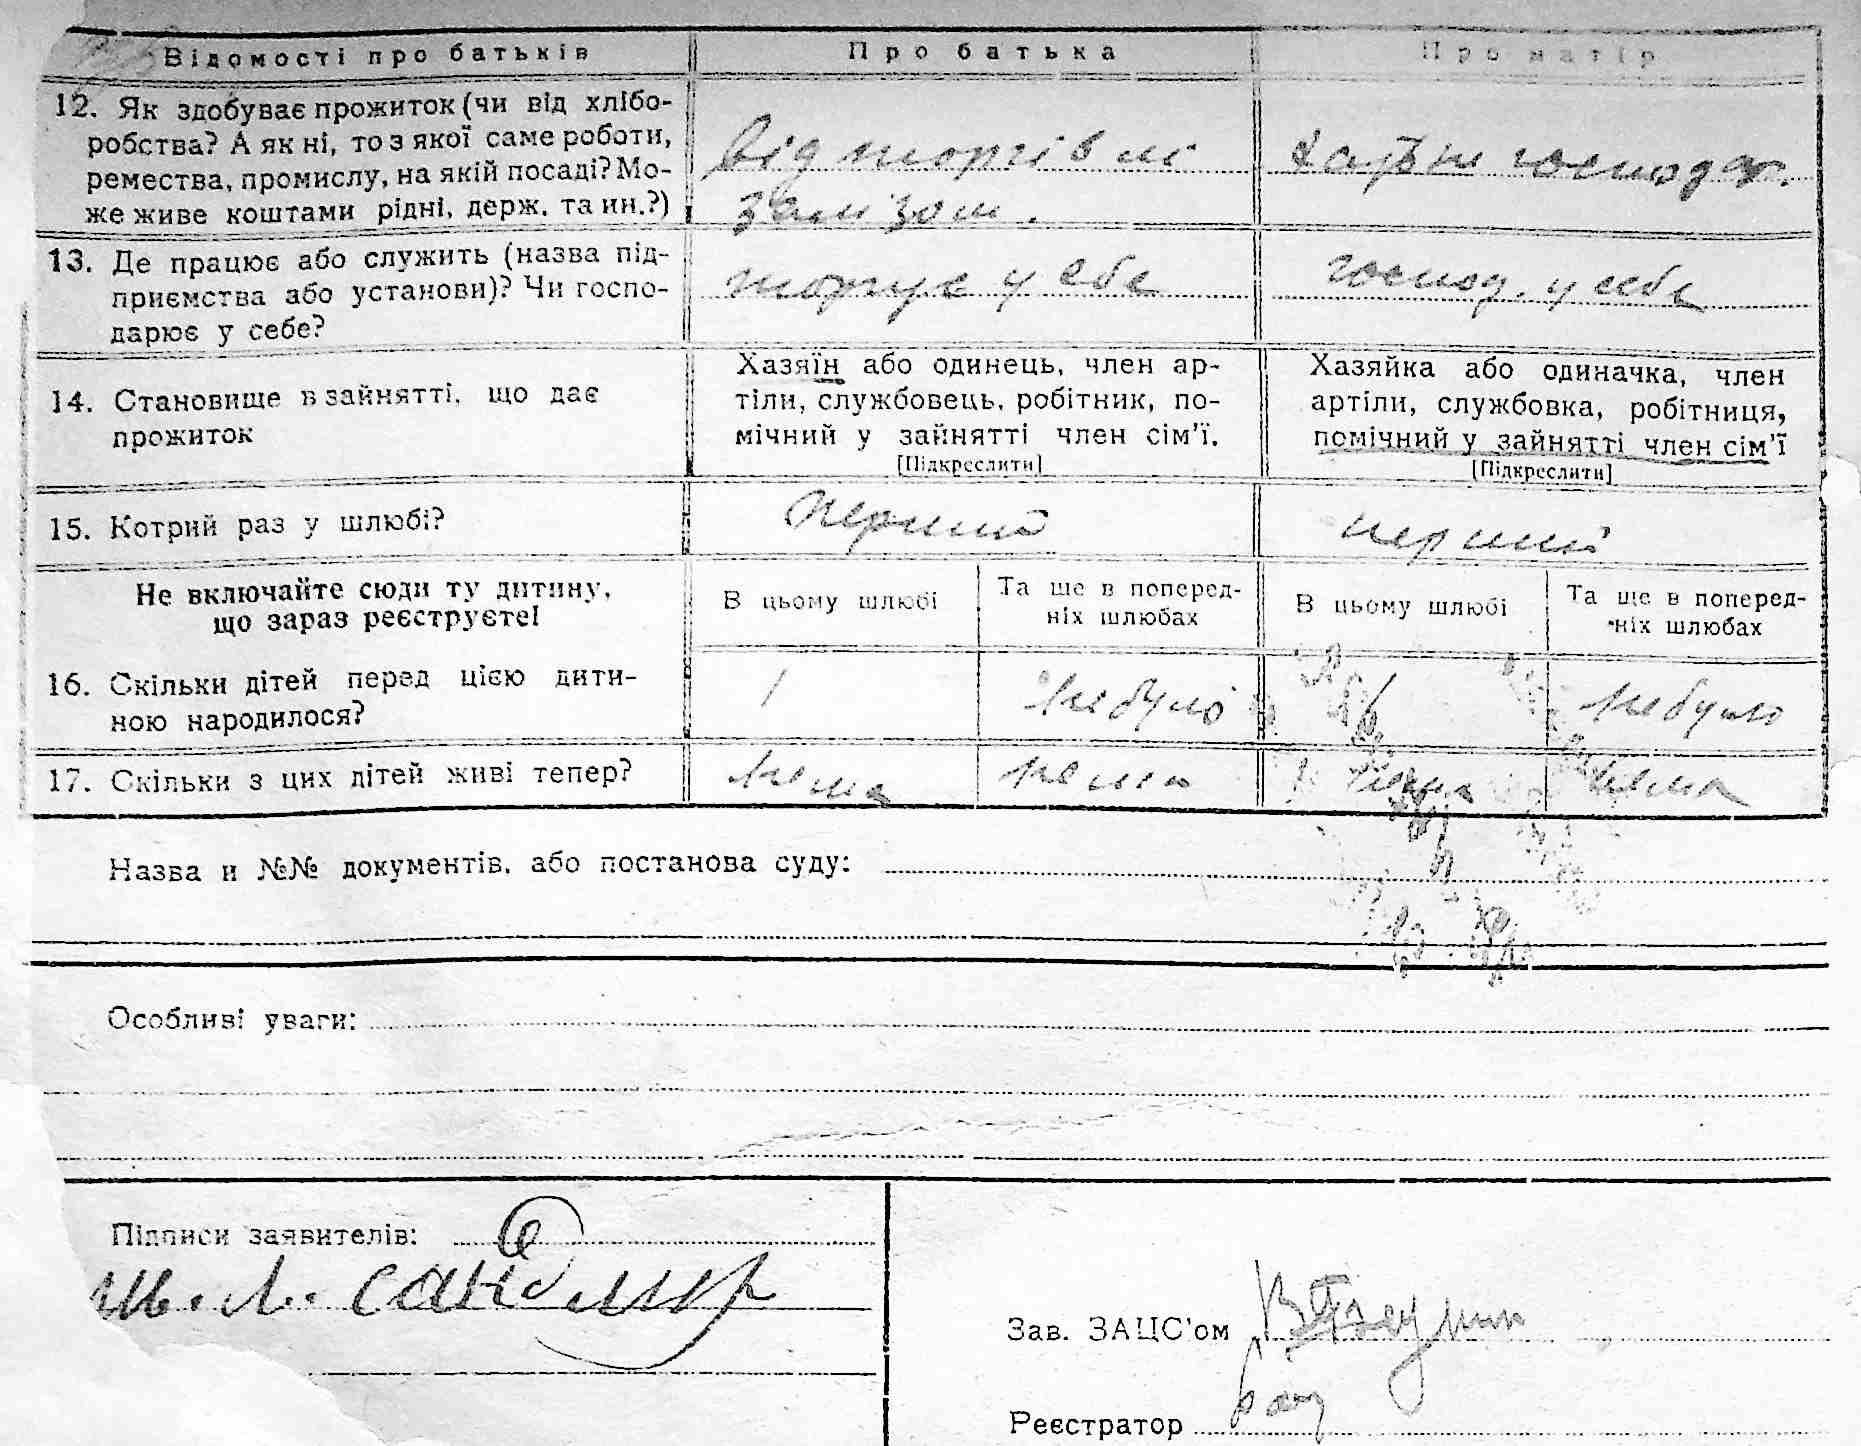 Відомості про батьків Про батька Про матір
12. Як здобуває прожиток (чи від хлібо-
робства? А як ні, то з якої саме роботи,
ремества, промислу, на якій посаді? Мо-
же живе коштами рідні, держ. та ин.?)
від торгівлі
залізом.
хатне господар.
13. Де працює або служить (назва під-
приємства або установи)? Чи госпо-
дарює у себе?
торгує у себе
господ. у себе
14. Становище в зайнятті, що дає
прожиток
Хазяїн або одинець, член ар-
тіли, службовець, робітник, по-
мічний у зайнятті член сім'ї.
[Підкреслити]
Хазяйка або одиначка, член
артіли, службовка, робітниця,
помічний у зайнятті член сім'ї
[Підкреслити]
15. Котрий раз у шлюбі?
перший
перший
Не включайте сюди ту дитину,
що зараз реєструєте!
В цьому шлюбі
Та ще в поперед-
ніх шлюбах
В цьому шлюбі
Та ще в поперед-
ніх шлюбах
16. Скільки дітей перед цією дити-
ною народилося?
1 не було 1 не було
17. Скільки з цих дітей живі тепер?
нема нема нема нема
Назва и №№ документів, або постанова суду:
Особливі уваги:
Підписи заявителів:
Ш. Л. Сандлер
Зав. ЗАЦС'ом
Реєстратор